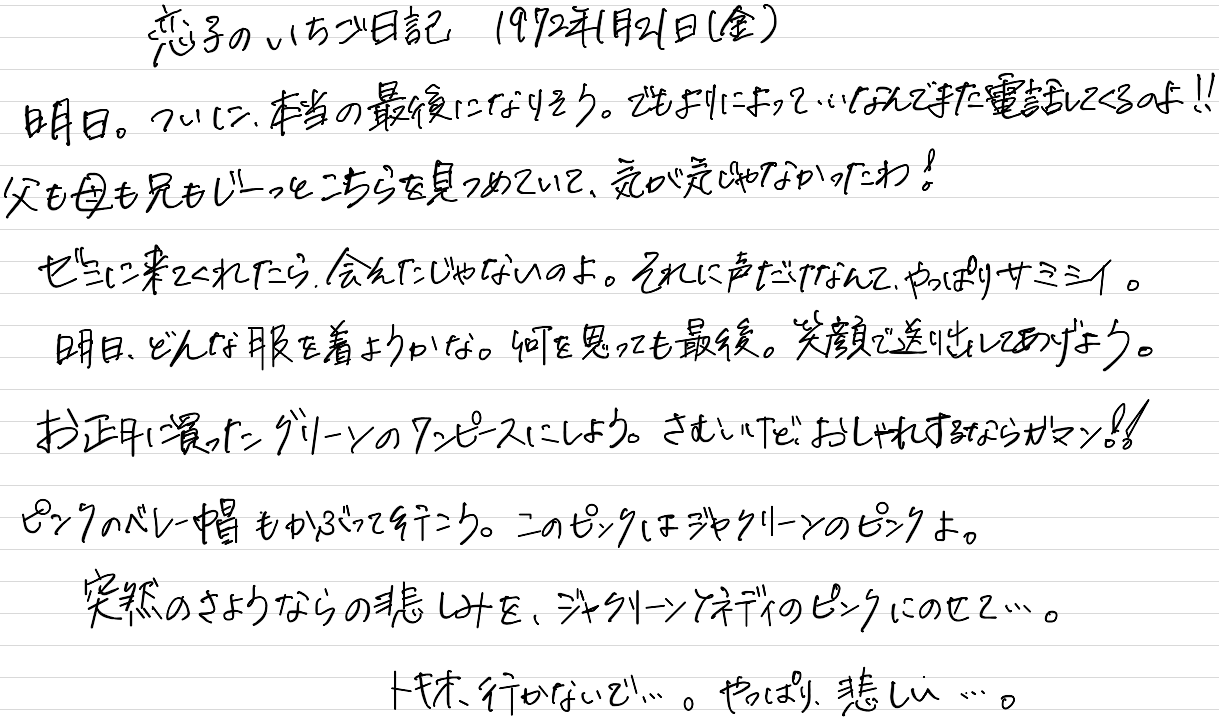 恋子のいちご日記 1972年1月21日(金)
明日。ついに、本当の最後になりそう。でもよりによって、いなんでまた電話してくるのよ!!
父も母も兄もじーっとこちらを見つめていて、気が気じゃなかったわ!
ゼミに来てくれたら、会えたじゃないのよ。それに声だけなんて、やっぱりサミシイ。
明日、どんな服を着ようかな。何を思っても最後。笑顔で送り出してあげよう。
お正月に買ったグリーンのワンピースにしよう。さむいけど、おしゃれするならガマン!!
ピンクのベレー帽もかぶって行こう。このピンクはジャクリーンのピンクよ。
突然のさようならの悲しみを、ジャクリーンケネディのピンクにのせて…。
トキオ、行かないで…。やっぱり、悲しい…。